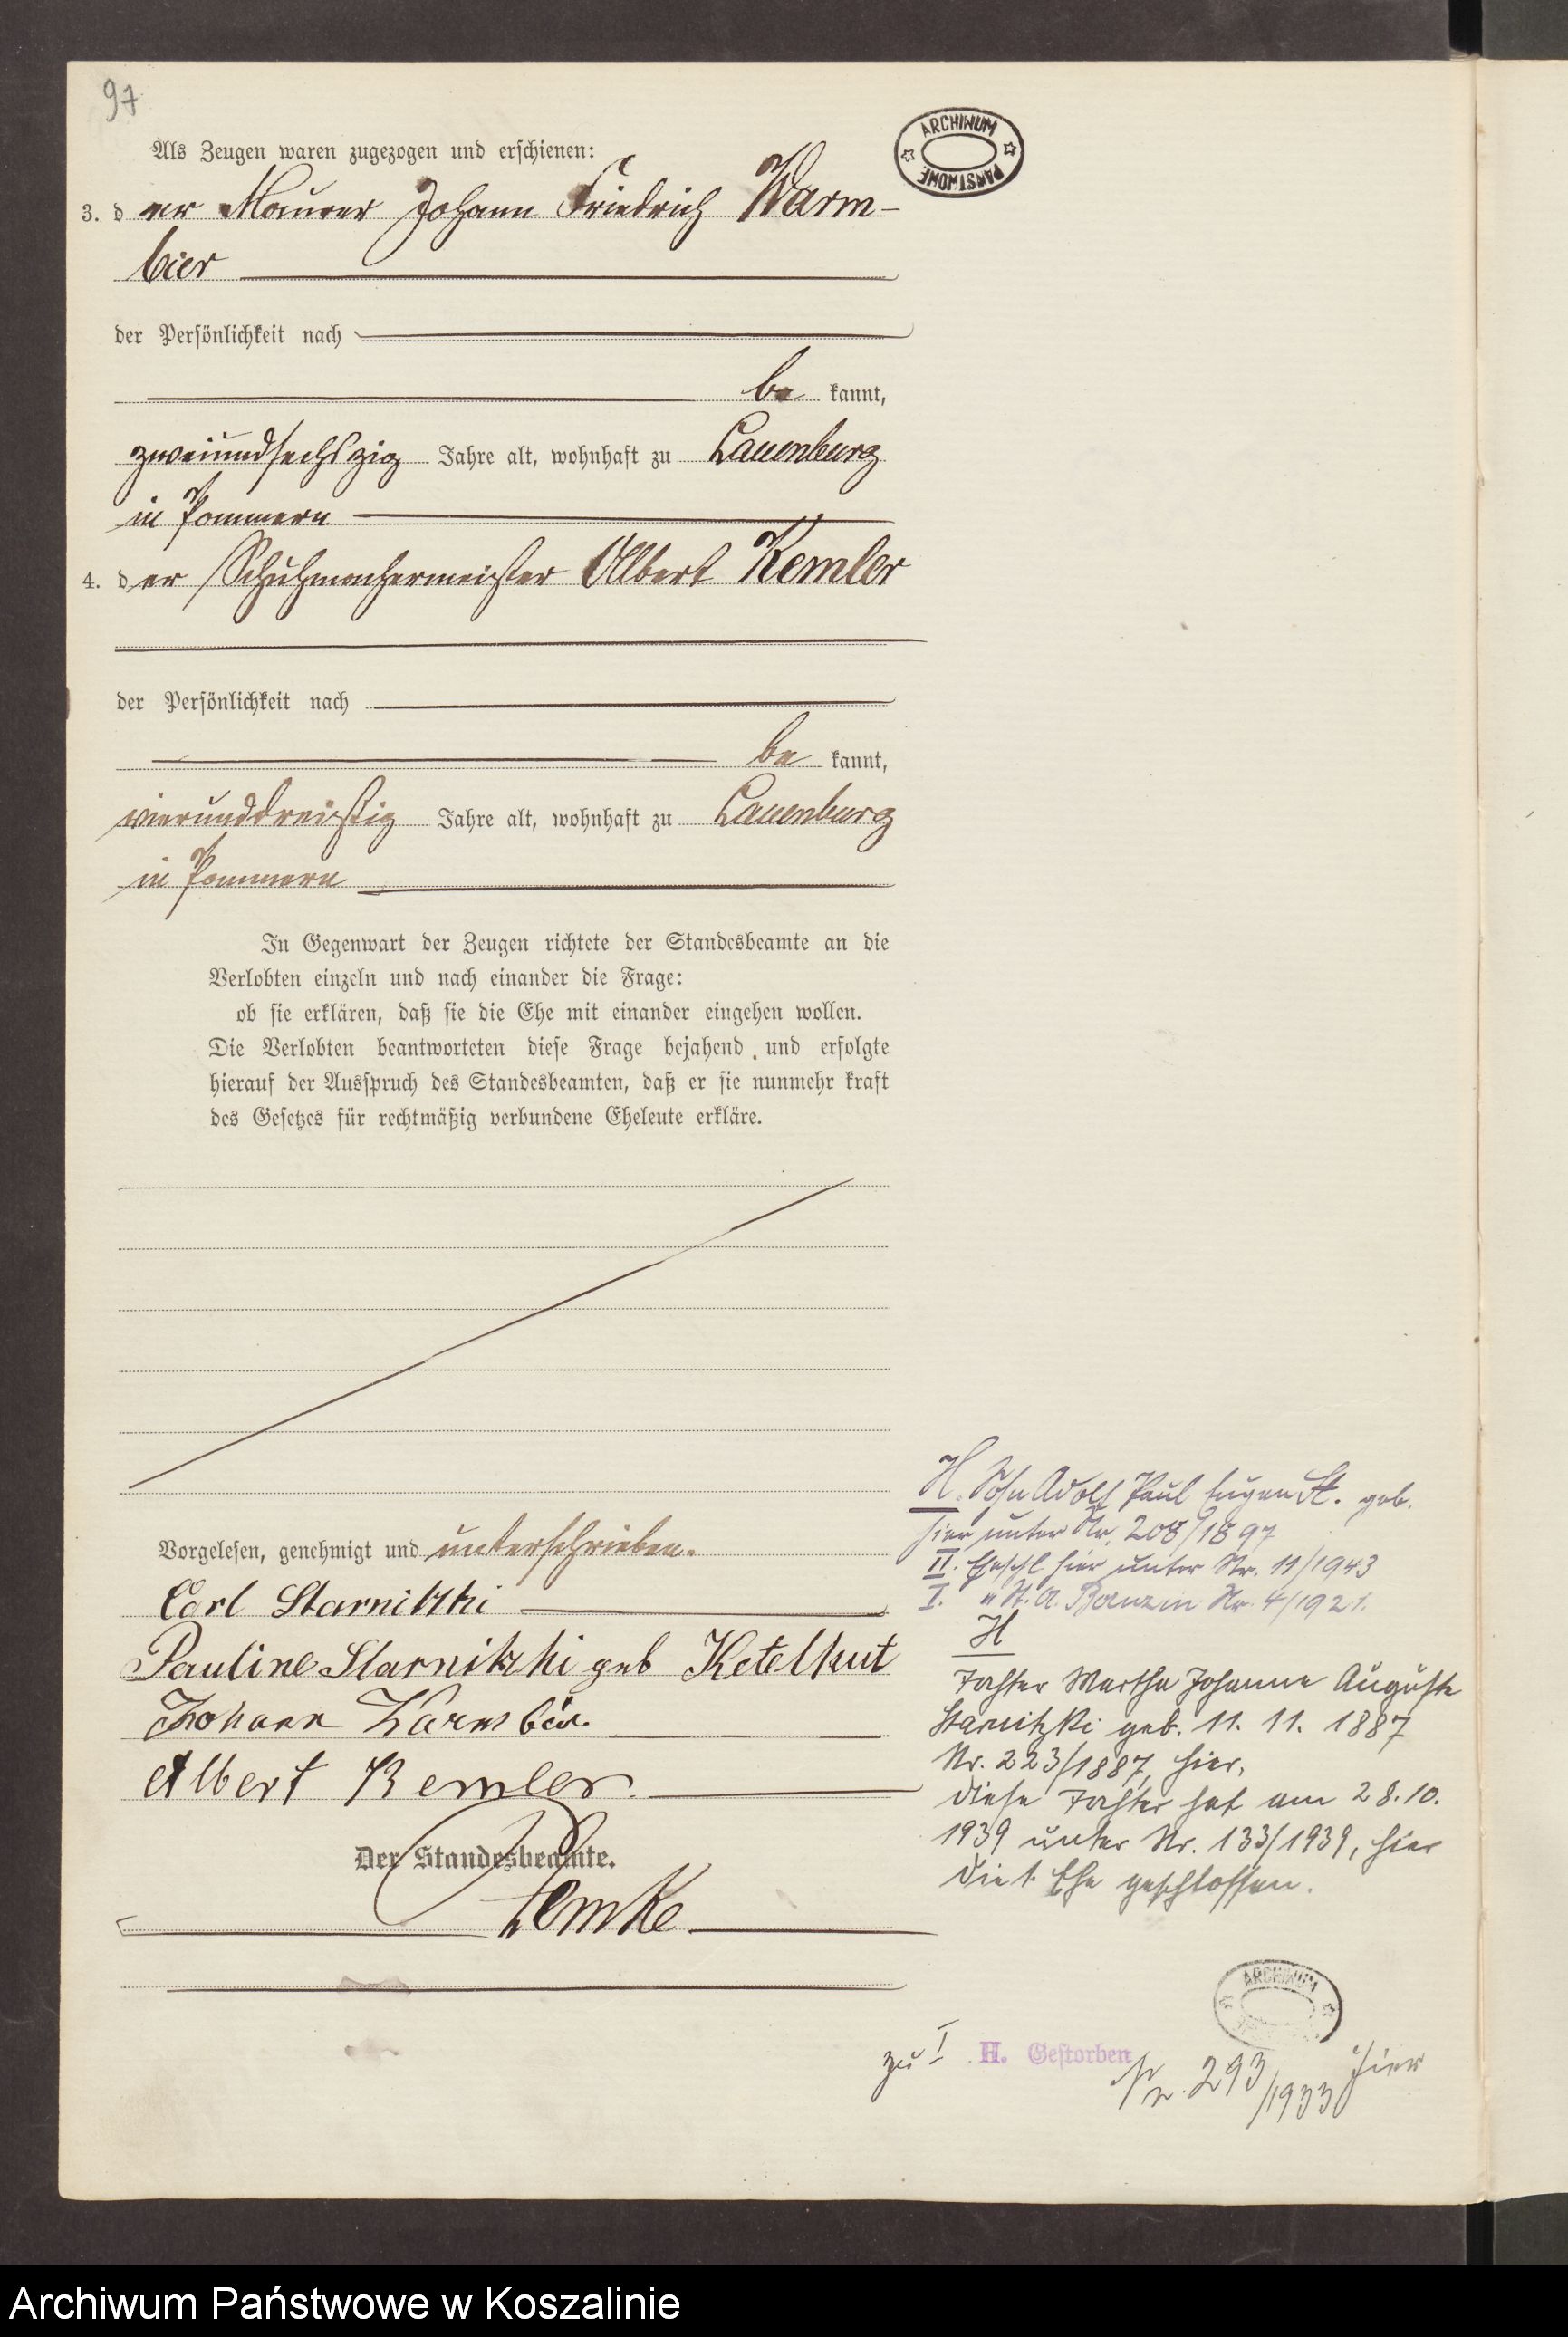 97
ARCHIWUM PAŃSTWOWE
Als Zeugen waren zugezogen und erschienen:
3. der Maurer Johann Friedrich Warm-
bier
der Persönlichkeit nach
be kannt,
zweiundsechszig Jahre alt, wohnhaft zu Lauenburg
in Pommern
4. der Schuhmachermeister Albert Kemler
der Persönlichkeit nach
be kannt,
vierunddreißig Jahre alt, wohnhaft zu Lauenburg
in Pommern
In Gegenwart der Zeugen richtete der Standesbeamte an die
Verlobten einzeln und nach einander die Frage:
ob sie erklären, daß sie die Ehe mit einander eingehen wollen.
Die Verlobten beantworteten diese Frage bejahend und erfolgte
hierauf der Ausspruch des Standesbeamten, daß er sie nunmehr kraft
des Gesetzes für rechtmäßig verbundene Eheleute erkläre.
Vorgelesen, genehmigt und unterschrieben.
Carl Starnitzki
Pauline Starnitzki geb Ketelhut
Johann Warmbier
Albert Kemler.
Der Standesbeamte.
Lemke
H. Sohn Adolf Paul Eugen St. geb.
hier unter Nr. 208/1897
II. Eheschl hier unter Nr. 11/1943
I. " St. A. Nr. 4/1921.
H
Tochter Martha Johanne Auguste
Starnitzki geb. 11. 11. 1887
Nr. 223/1887, hier,
diese Tochter hat am 28.10.
1939 unter Nr. 133/1939, hier
die 1. Ehe geschlossen.
ARCHIWUM
zu I H. Gestorben
Nr. 293/1933 hier
Archiwum Państwowe w Koszalinie